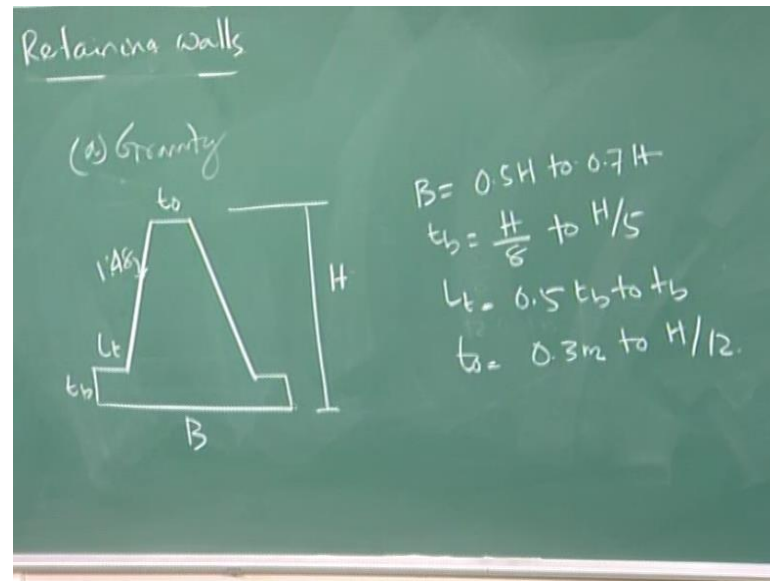 Retaining walls
(a) Gravity
t₀
1:48
H
Lt
tb
B
B = 0.5H to 0.7H
tb = H/8 to H/5
Lt = 0.5 tb to tb
t₀ = 0.3m to H/12.